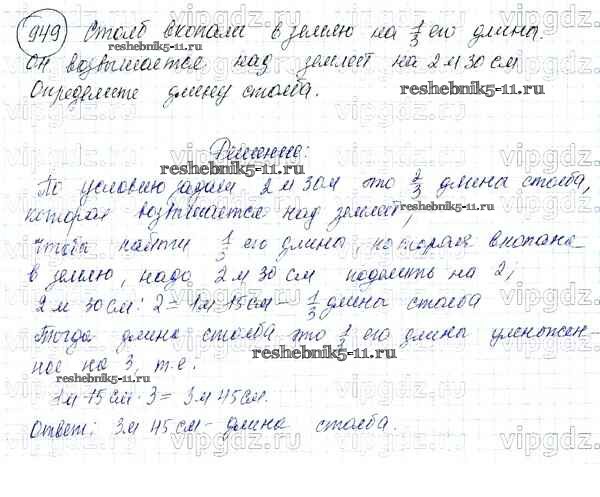 949 Столб вкопали в землю на 1/3 его длины.
reshebnik5-11.ru
Он возвышается над землей на 2 м 30 см
Определите длину столба.
reshebnik5-11.ru
Решение:
reshebnik5-11.ru
По условию задачи 2 м 30м это 2/3 длина столба,
которая возвышается над землей,
reshebnik5-11.ru
чтобы найти 1/3 его длины, которая вкопана
в землю, надо 2 м 30 см поделить на 2;
2 м 30см : 2 = 1м 15см - 1/3 длины столба
Тогда длина столба это 1/3 его длины умножен-
ное на 3, т.е.
reshebnik5-11.ru
reshebnik5-11.ru
1м 15см · 3 = 3м 45см.
Ответ: 3м 45см - длина столба.
vipgdz.com